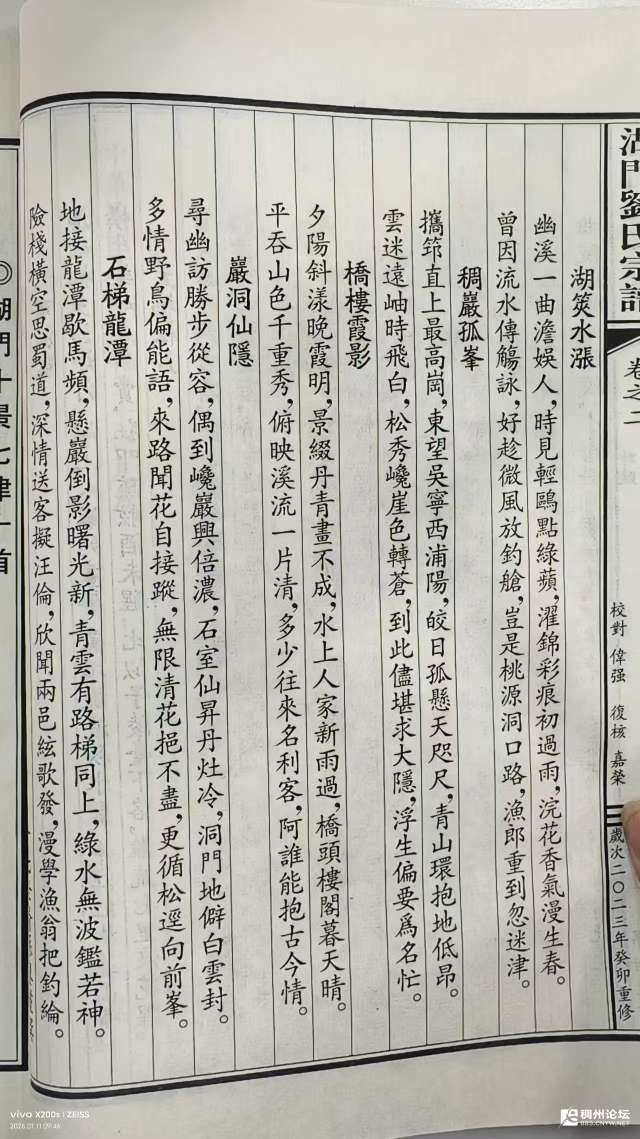 湖門劉氏宗譜
卷之二
校對 偉强 復核 嘉榮
歲次二〇二三年癸卯重修
湖筴水漲
幽溪一曲澹娱人，時見輕鷗點綠蘋，濯錦彩痕初過雨，浣花香氣漫生春。
曾因流水傳觴詠，好趁微風放釣艙，豈是桃源洞口路，漁郎重到忽迷津。
稠巖孤峯
攜筇直上最高崗，東望吳寧西浦陽，皎日孤懸天咫尺，青山環抱地低昂。
雲迷遠岫時飛白，松秀巉崖色轉蒼，到此儘堪求大隱，浮生偏要爲名忙。
橋樓霞影
夕陽斜漾晚霞明，景綴丹青畫不成，水上人家新雨過，橋頭樓閣暮天晴。
平吞山色千重秀，俯映溪流一片清，多少往來名利客，阿誰能抱古今情。
巖洞仙隱
尋幽訪勝步從容，偶到巉巖興倍濃，石室仙昇丹灶冷，洞門地僻白雲封。
多情野鳥偏能語，來路聞花自接蹤，無限清花挹不盡，更循松逕向前峯。
石梯龍潭
地接龍潭歇馬頻，懸巖倒影曙光新，青雲有路梯同上，綠水無波鑑若神。
險棧橫空思蜀道，深情送客擬汪倫，欣聞兩邑絃歌發，漫學漁翁把釣綸。
◎湖門十景七律十首
vivo X200s | ZEISS
2026.01.11 09:46
稠州论坛
BBS.CNYW.NET